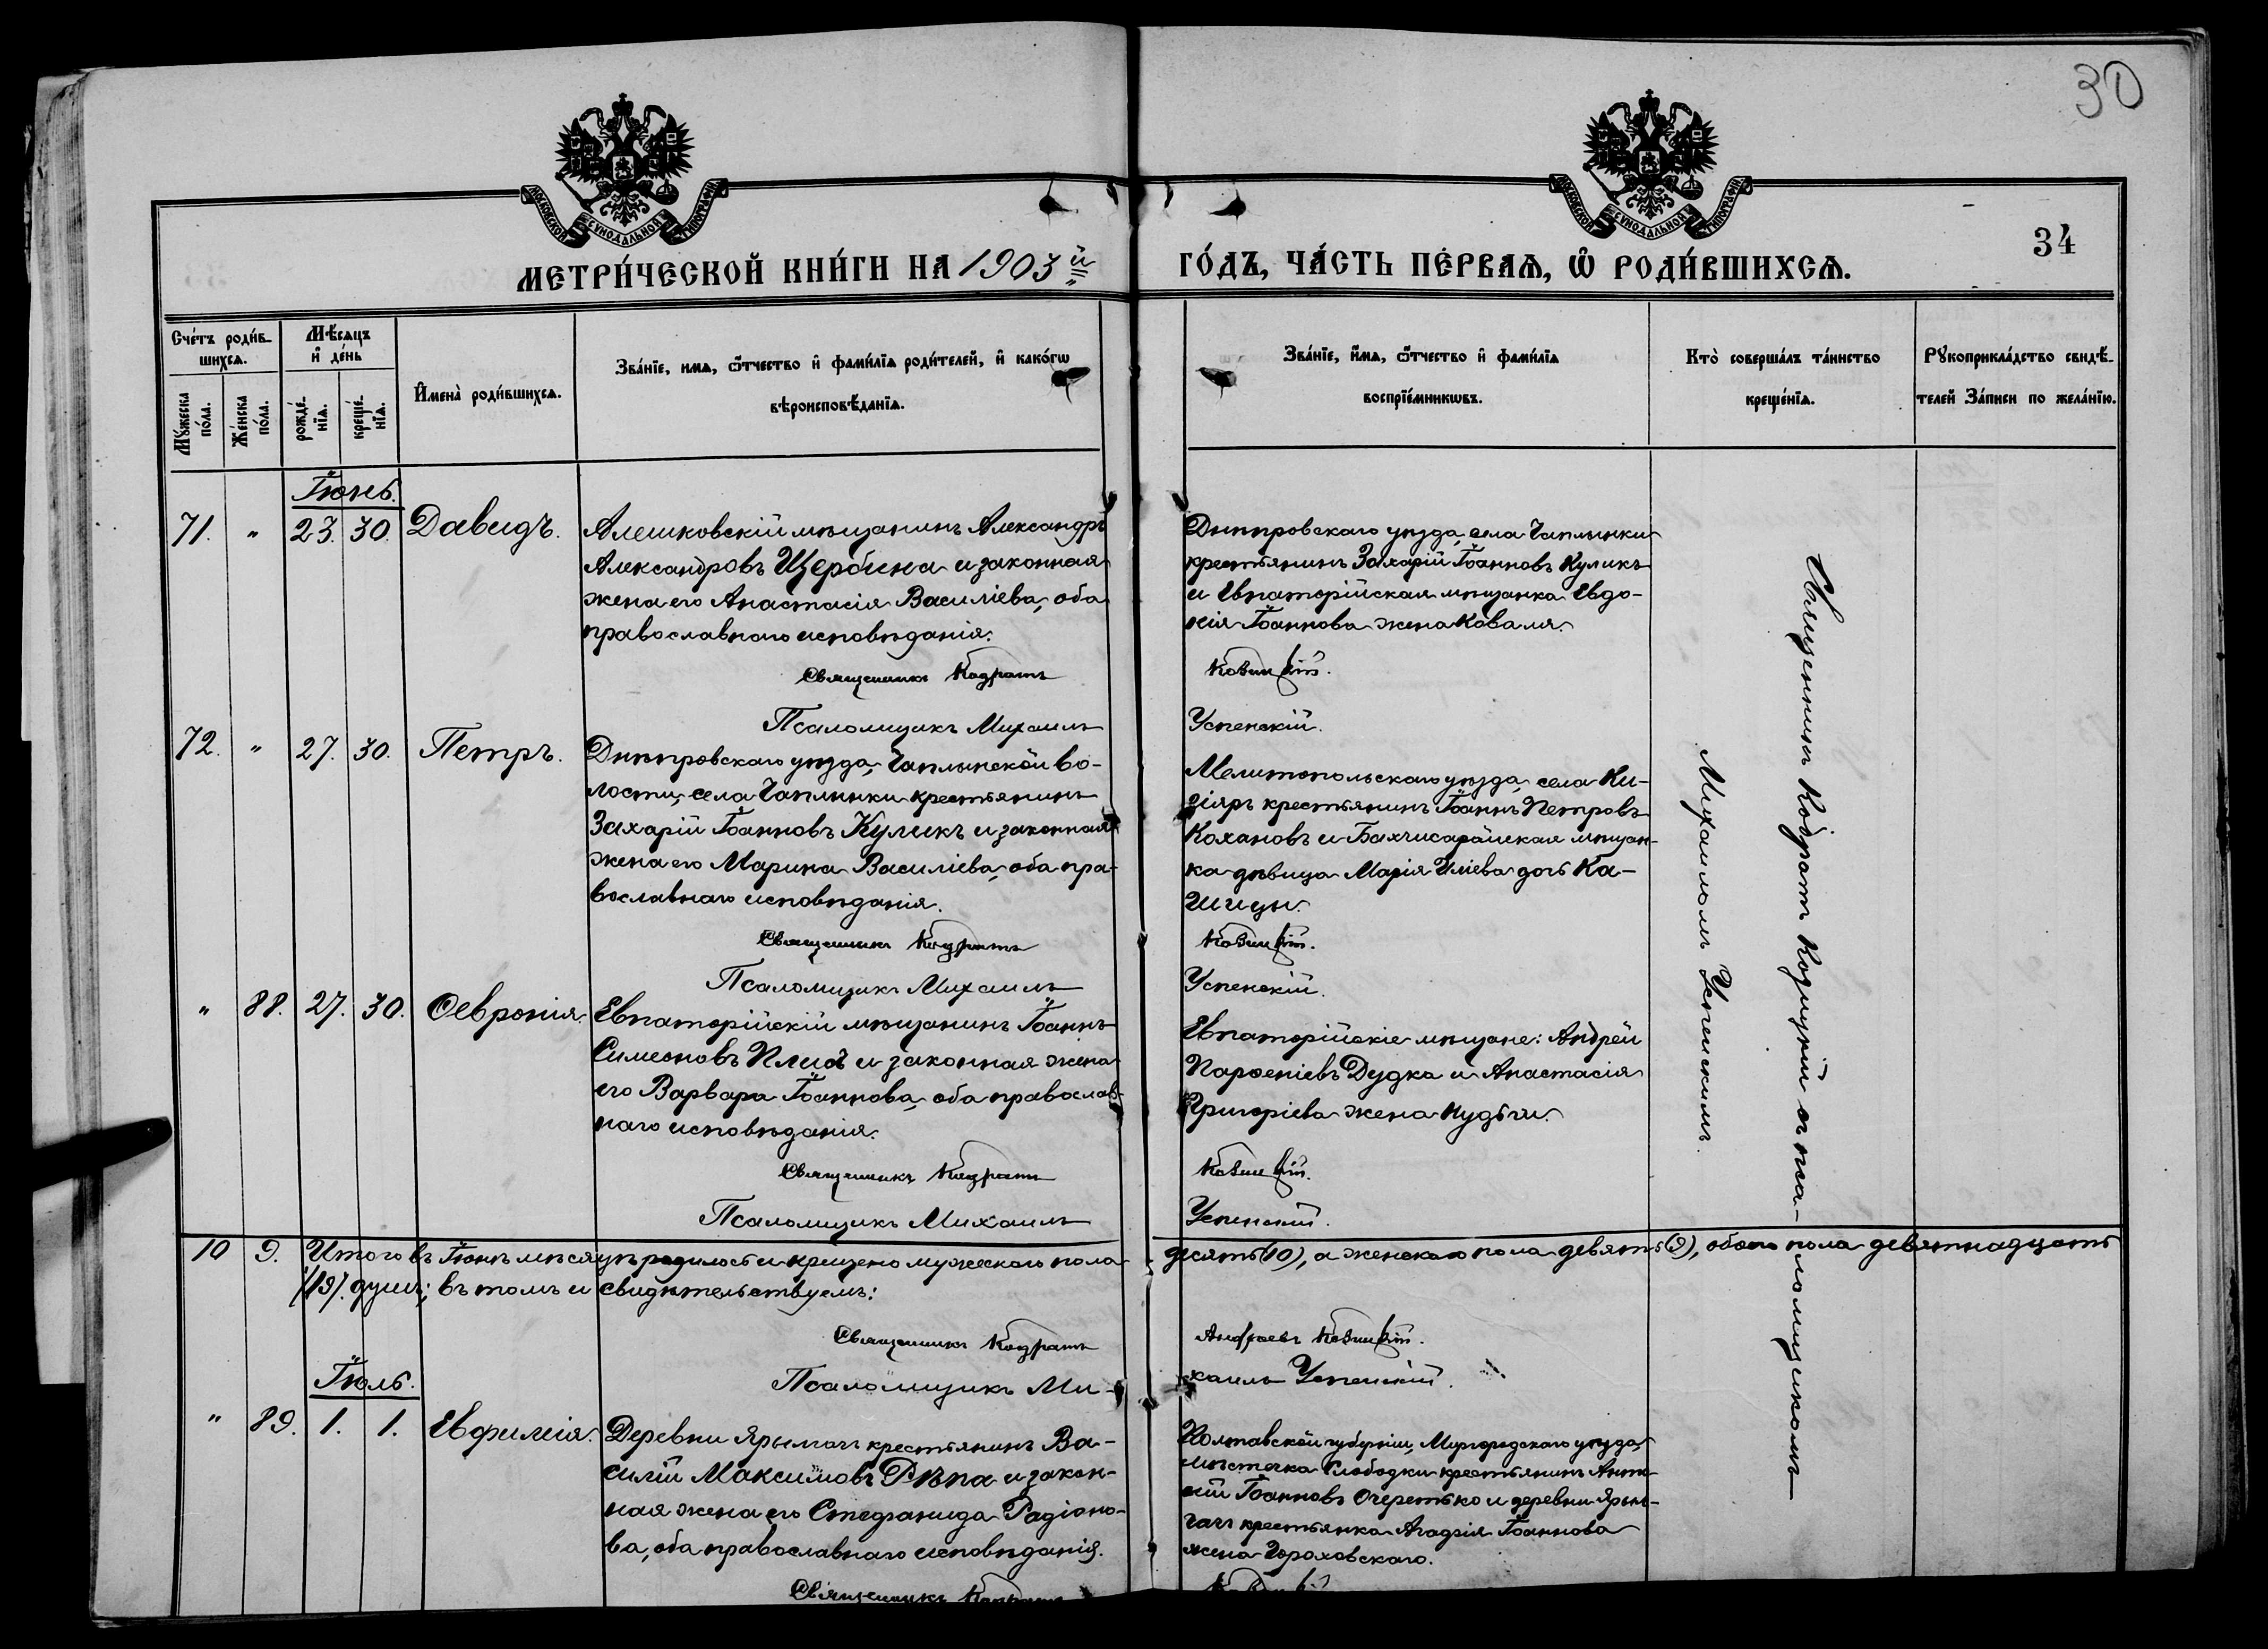 30
МОСКОВСКОЙ СУНОДАЛЬНОЙ ТИПОГРАФІИ
МОСКОВСКОЙ СУНОДАЛЬНОЙ ТИПОГРАФІИ
34
МЕТРИ́ЧЕСКОЙ КНИ́ГИ НА 1903й
ГО́ДЪ, ЧА́СТЬ ПЕ́РВАѦ, Ѡ РОДИ́ВШИХСѦ.
Сче́тъ роди́в-
шихсѧ.
Мѣ́сѧцъ
и де́нь
Мꙋ́жеска
по́ла.
Же́нска
по́ла.
рожде́-
нїѧ.
креще́-
нїѧ.
Имена̀ роди́вшихсѧ.
Зва́нїе, имѧ, ѻ́тчество и фами́лїѧ роди́телей, и како́гѡ
вѣроисповѣ́данїѧ.
Зва́нїе, и́мѧ, ѻ́тчество и фами́лїѧ
воспрїе́мникѡвъ.
Кто̀ соверша́лъ та́инство
креще́нїѧ.
Рꙋкоприкла́дство свидѣ́-
телей за́писи по жела́нїю.
Іюнь.
71. " 23. 30. Давидъ.
Алешковскій мѣщанинъ Александръ
Александровъ Щербина и законная
жена его Анастасія Василіева, оба
православнаго исповѣданія.
Священникъ Кодратъ
Псаломщикъ Михаилъ
Днѣпровскаго уѣзда, села Чаплинки
крестьянинъ Захарій Іоанновъ Куликъ
и Евпаторійская мѣщанка Евдо-
кія Іоаннова жена Коваля.
Успенскій.
72. " 27. 30. Петръ.
Днѣпровскаго уѣзда, Чаплинской во-
лости, села Чаплинки крестьянинъ
Захарій Іоанновъ Куликъ и законная
жена его Марина Василіева, оба пра-
вославнаго исповѣданія.
Священникъ Кодратъ
Псаломщикъ Михаилъ
Мелитопольскаго уѣзда, села Ки-
зіяръ крестьянинъ Іоаннъ Петровъ
Кохановъ и Бахчисарайская мѣщан-
ка дѣвица Марія Иліева дочь Ка-
шицы.
Успенскій.
" 88. 27. 30. Ѳевронія.
Евпаторійскій мѣщанинъ Іоаннъ
Симеоновъ и законная жена
его Варвара Іоаннова, оба православ-
наго исповѣданія.
Священникъ Кодратъ
Псаломщикъ Михаилъ
Евпаторійскіе мѣщане: Андрей
Парѳеніевъ Дудка и Анастасія
Григоріева жена
Успенскій.
Священникъ Кодратъ с пса-
ломщикомъ
Михаиломъ Успенскимъ.
10 9. Итого въ Іюнѣ мѣсяцѣ родилось и крещено мужескаго пола
десять (10), а женскаго пола девять (9), обоего пола девятнадцать
(19) душъ; въ томъ и свидѣтельствуемъ:
Священникъ Кодратъ
Псаломщикъ Ми-
Андреевъ
хаилъ Успенскій.
Іюль.
" 89. 1. 1. Евфимія.
Деревни Ярылгачъ крестьянинъ Ва-
силій Максимовъ Рѣпа и закон-
ная жена его Стефанида Радіоно-
ва, оба православнаго исповѣданія.
Священникъ Кодратъ
Полтавской губерніи, Миргородскаго уѣзда,
мѣстечка Слободки крестьянинъ Анто-
ній Іоанновъ Очеретько и деревни Ярыл-
гачъ крестьянка Агафія Іоаннова
жена Гороховскаго.